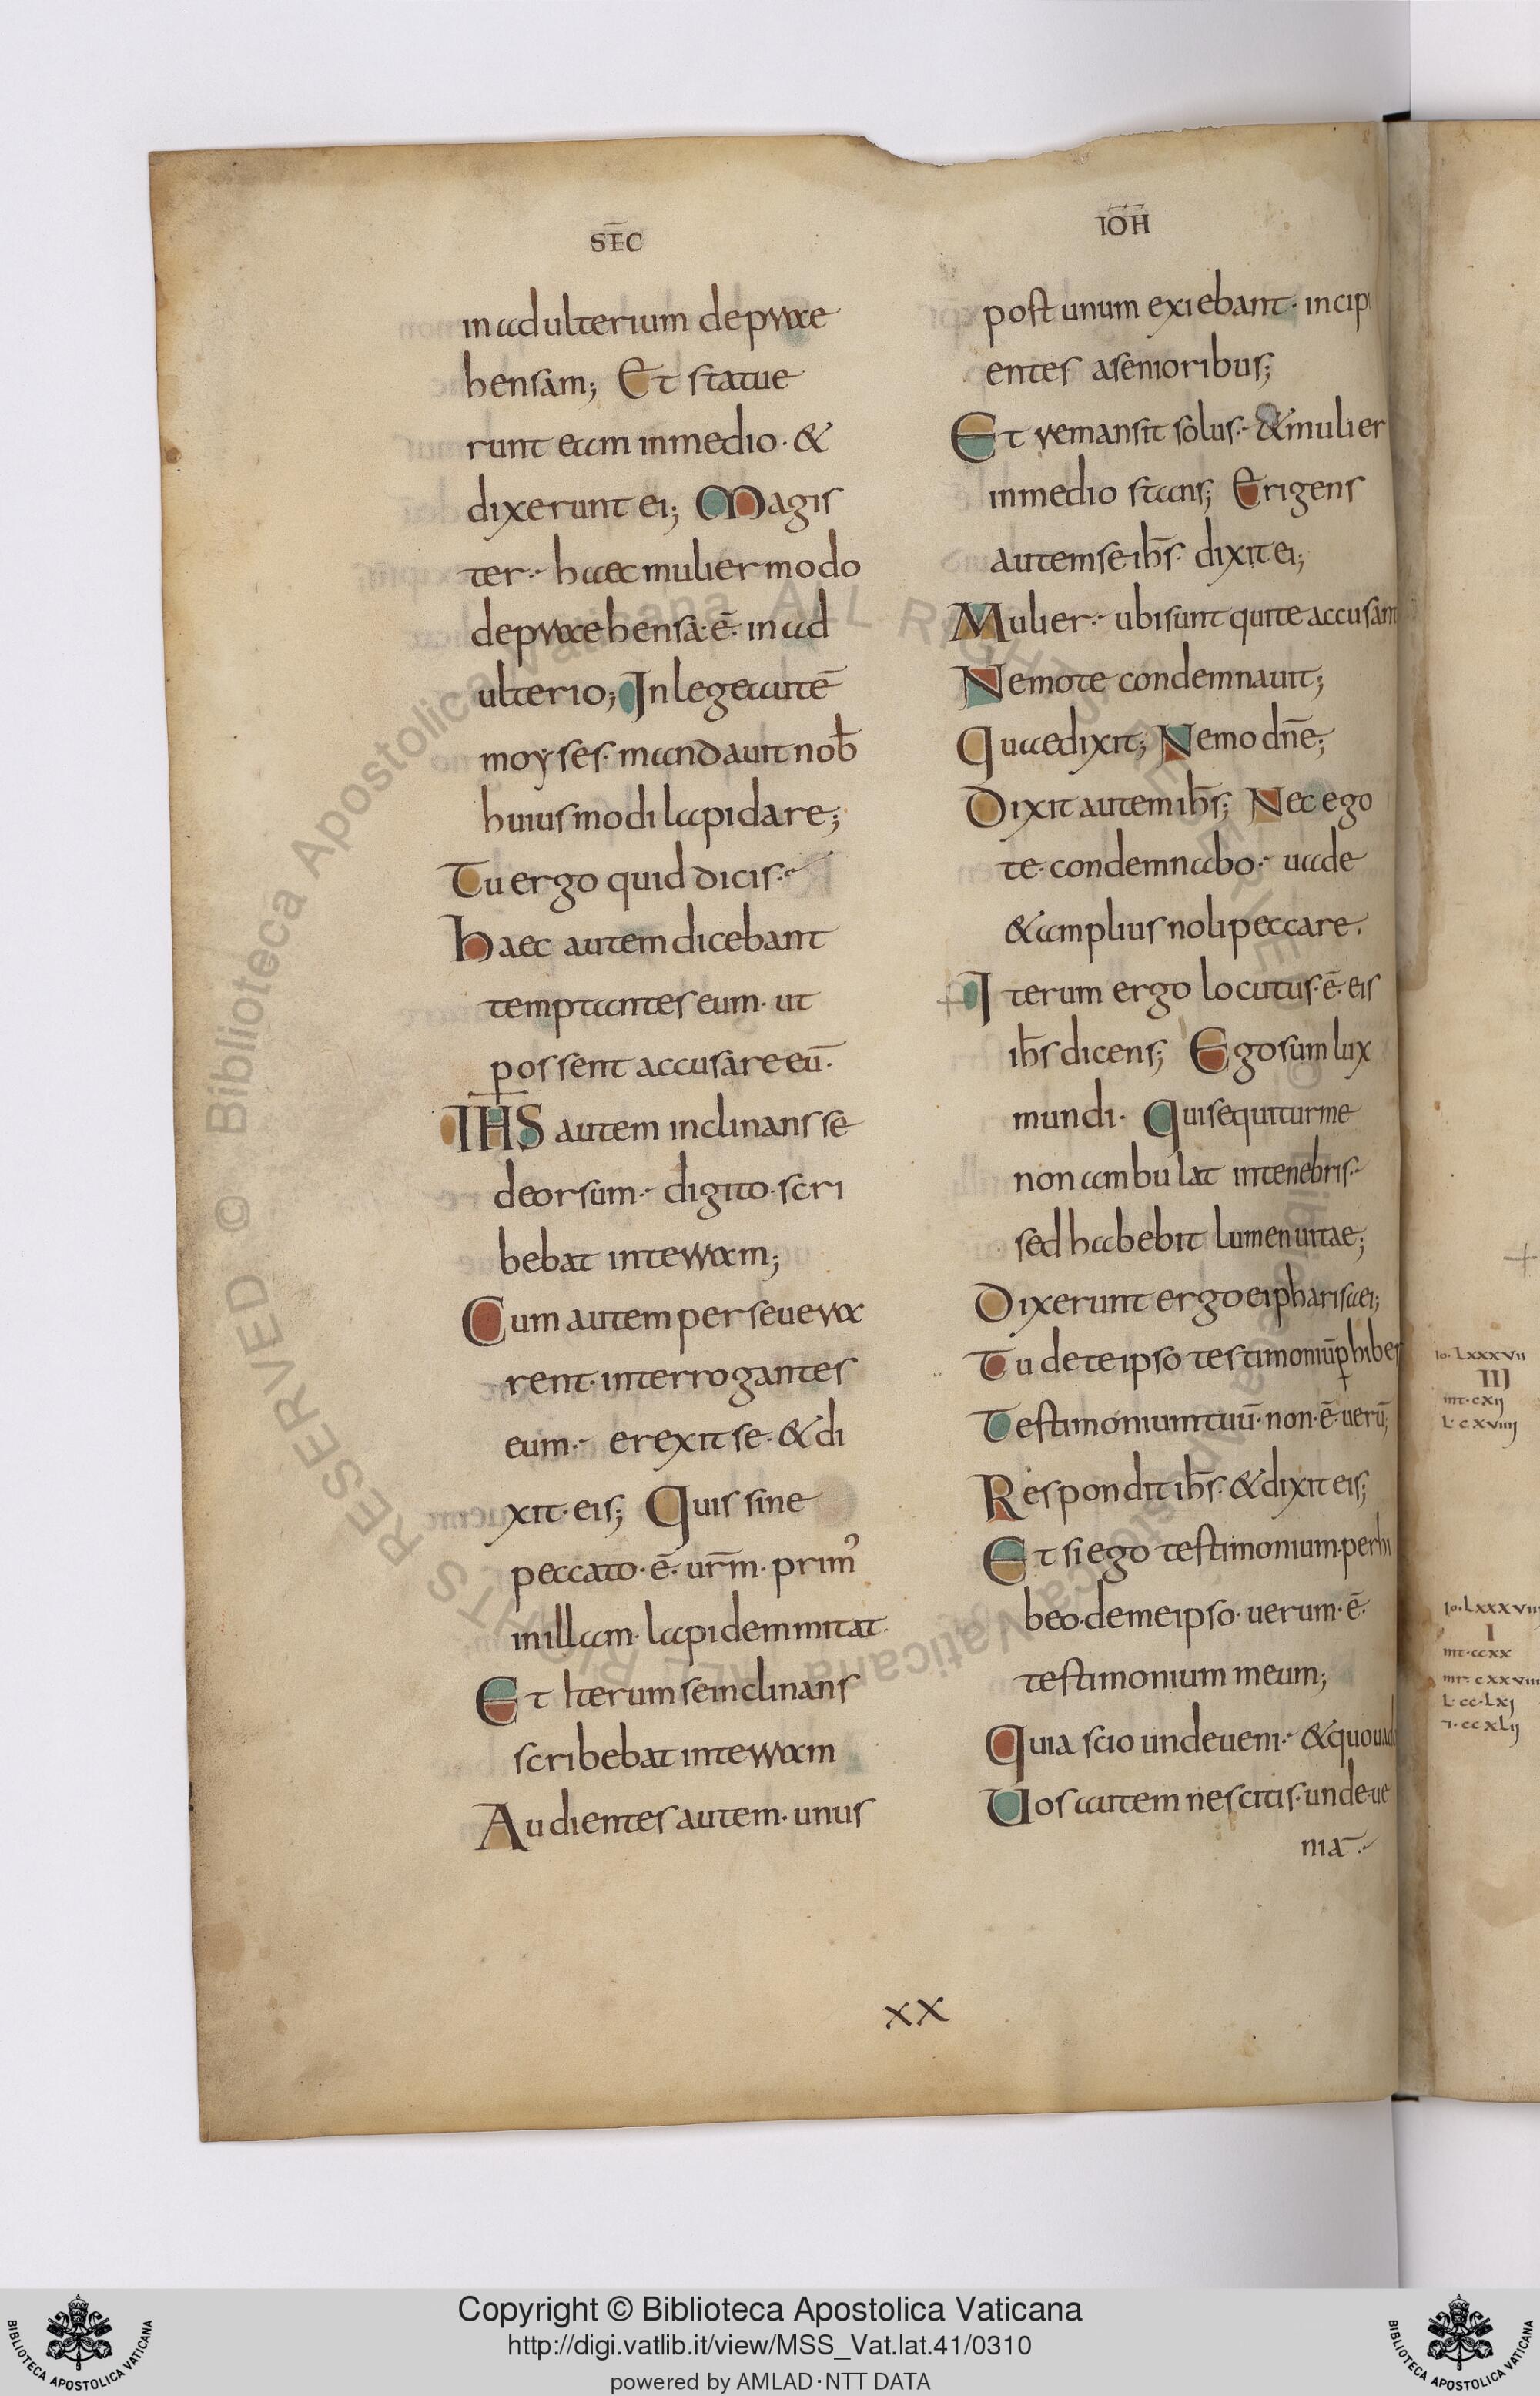 SEC̅
in adulterium depraehe
hensam; Et statue
runt eam inmedio · &
dixerunt ei; Magis
ter · haec mulier modo
depraehensa · ē · in ad
ulterio; In lege autē
moyses · mandauit nob̄
huiusmodi lapidare;
Tu ergo quid dicis ·
Haec autem dicebant
temptantes eum · ut
possent accusare eū ·
IHS autem inclinans se
deorsum · digito · scri
bebat in terram;
Cum autem perseuera
rent · interrogantes
eum · erexit se · & di
xit · eis; Quis sine
peccato · ē · ur̄m · prim᾿
in illam · lapidem mitat ·
Et Iterum se inclinans
scribebat in terram
Audientes autem · unus
IOH̅
post unum exiebant · incipi
entes a senioribus;
Et remansit solus · & mulier
inmedio stans; Erigens
autem se ih̄s · dixit ei;
Mulier · ubi sunt qui te accusant
Nemo te condemnauit;
Quae dixit; Nemo dn̄e;
Dixit autem ih̄s; Nec ego
te · condemnabo · uade
& amplius noli peccare ·
Iterum ergo locutus · ē · eis
ih̄s dicens; Ego sum lux
mundi · Qui sequitur me
non ambulat in tenebris ·
sed habebit lumen uitae;
Dixerunt ergo ei pharisaei;
Tu de te ipso testimoniū ꝑhibes
Testimonium tuū · non · ē · uerū;
Respondit ih̄s · & dixit eis;
Et si ego testimonium · perhi
beo · de me ipso · uerum · ē ·
testimonium meum;
Quia scio unde ueni · & quo uado
Uos autem nescitis · unde · ue
nia ·
XX
Io · LXXXVII
III
mt · cxij
L · cxviiii
Io · LXXXVII
I
mt · ccxx
mr · cxxviiii
L · cc · Lxj
· ccxLij
Copyright © Biblioteca Apostolica Vaticana
http://digi.vatlib.it/view/MSS_Vat.lat.41/0310
powered by AMLAD·NTT DATA
BIBLIOTECA APOSTOLICA VATICANA
BIBLIOTECA APOSTOLICA VATICANA